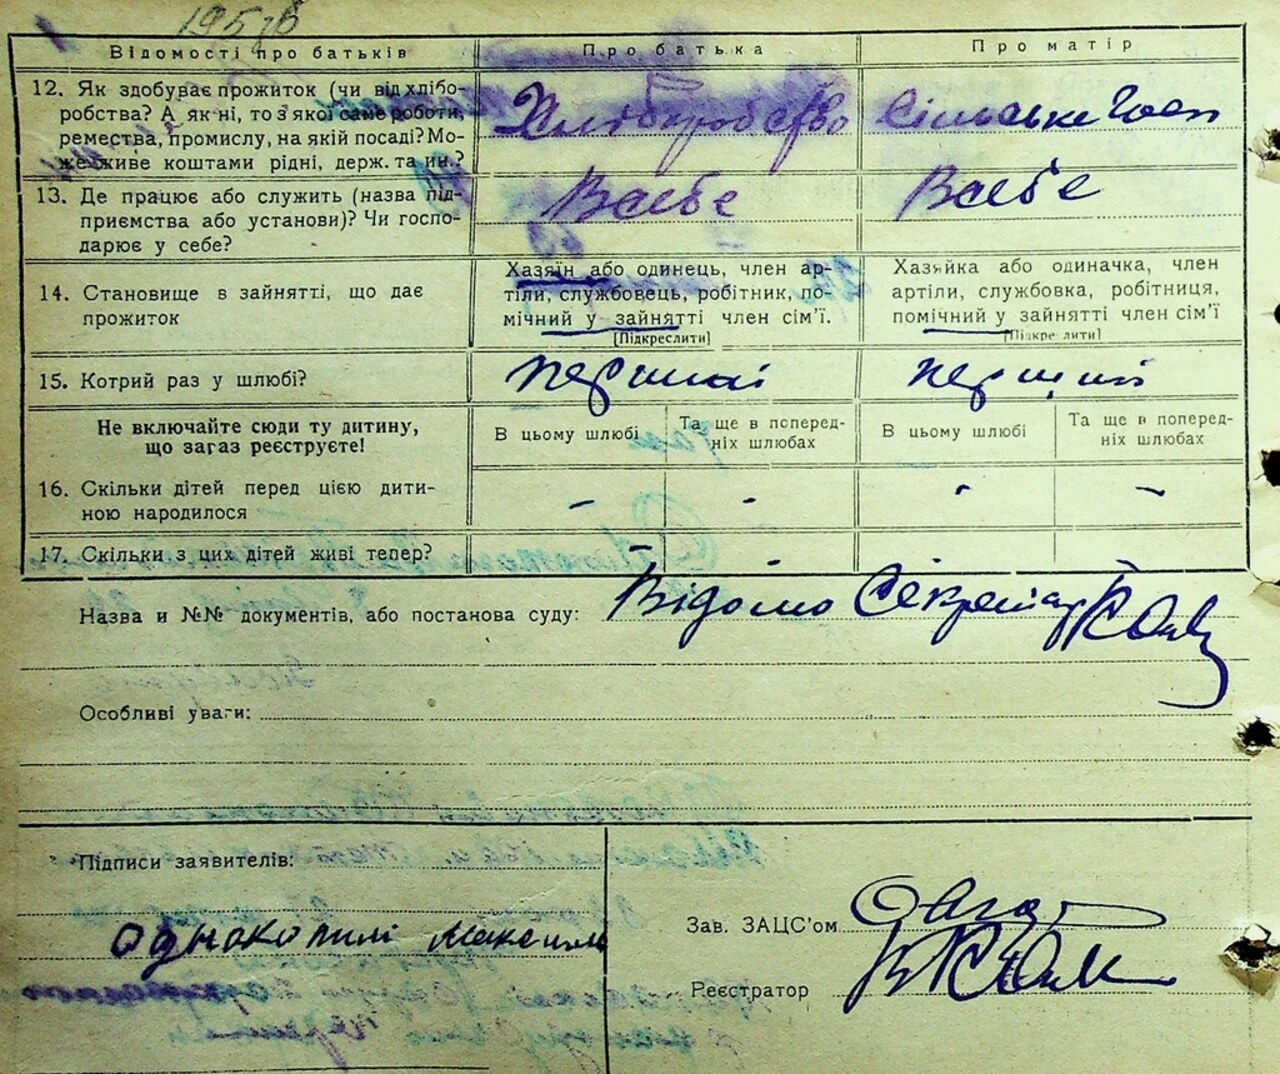 Відомості про батьків
Про батька
Про матір
12. Як здобуває прожиток (чи від хлібо-
робства? А як ні, то з якої саме роботи,
ремества, промислу, на якій посаді? Мо-
же живе коштами рідні, держ. та ин.?
Хліборобство
Сільське Госп
13. Де працює або служить (назва під-
приємства або установи)? Чи госпо-
дарює у себе?
Всебе
Всебе
14. Становище в зайнятті, що дає
прожиток
Хазяїн або одинець, член ар-
тіли, службовець, робітник, по-
мічний у зайнятті член сім'ї.
[Підкреслити]
Хазяйка або одиначка, член
артіли, службовка, робітниця,
помічний у зайнятті член сім'ї
[Підкреслити]
15. Котрий раз у шлюбі?
перший
перший
Не включайте сюди ту дитину,
що загаз реєструєте!
В цьому шлюбі
Та ще в попередніх
ніх шлюбах
В цьому шлюбі
Та ще в поперед-
ніх шлюбах
16. Скільки дітей перед цією дити-
ною народилося
-
-
-
-
17. Скільки з цих дітей живі тепер?
Назва и №№ документів, або постанова суду: Відомо Секретар
Особливі уваги:
Підписи заявителів:
Однокопилі Максим
Зав. ЗАЦС'ом
Реєстратор